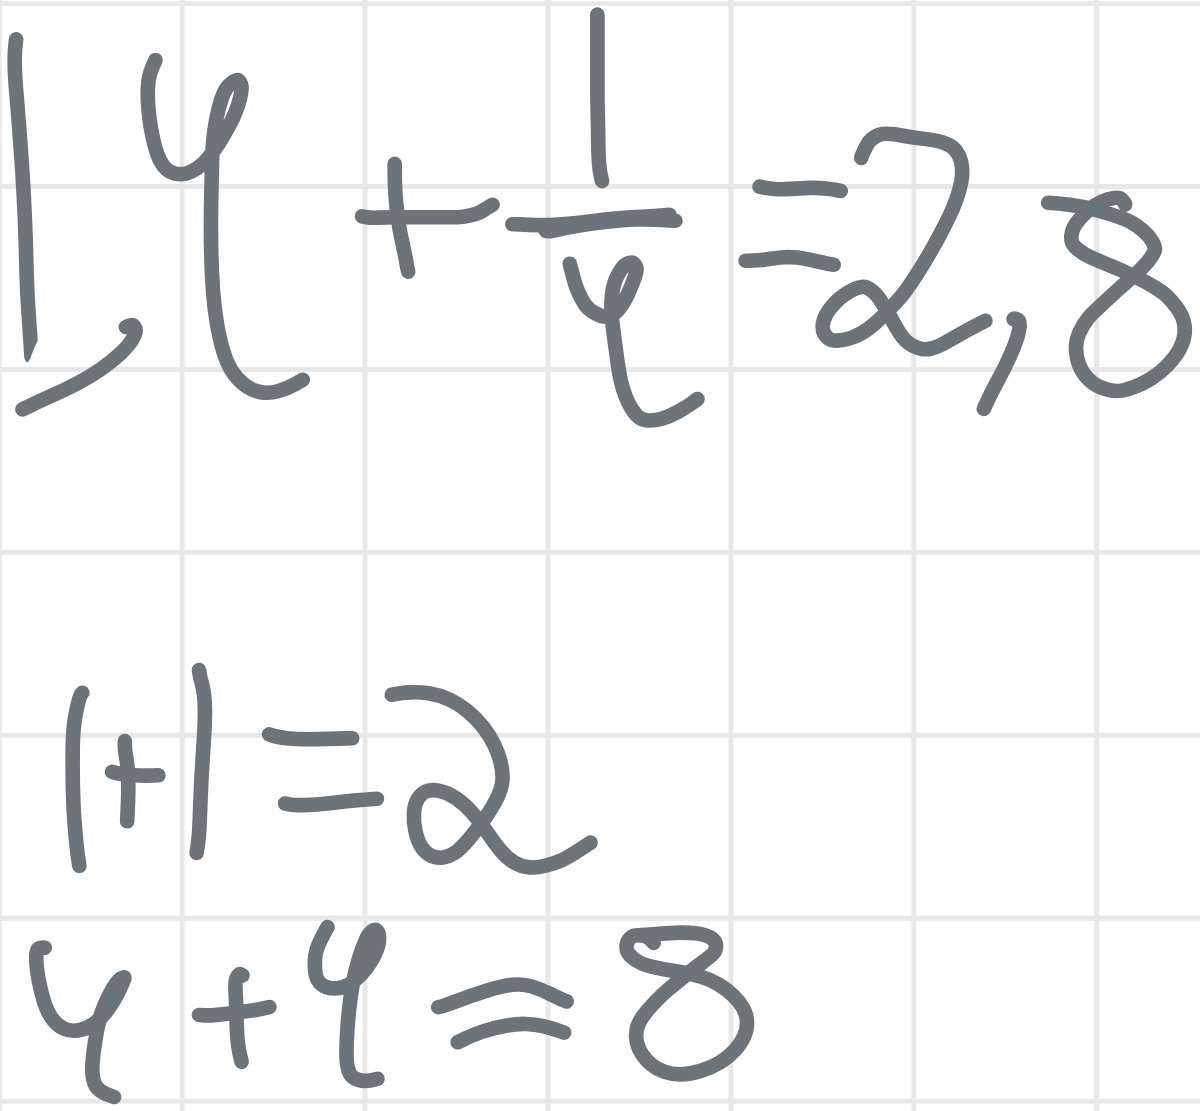 1,4 + 1/4 = 2,8
1+1=2
4+4=8